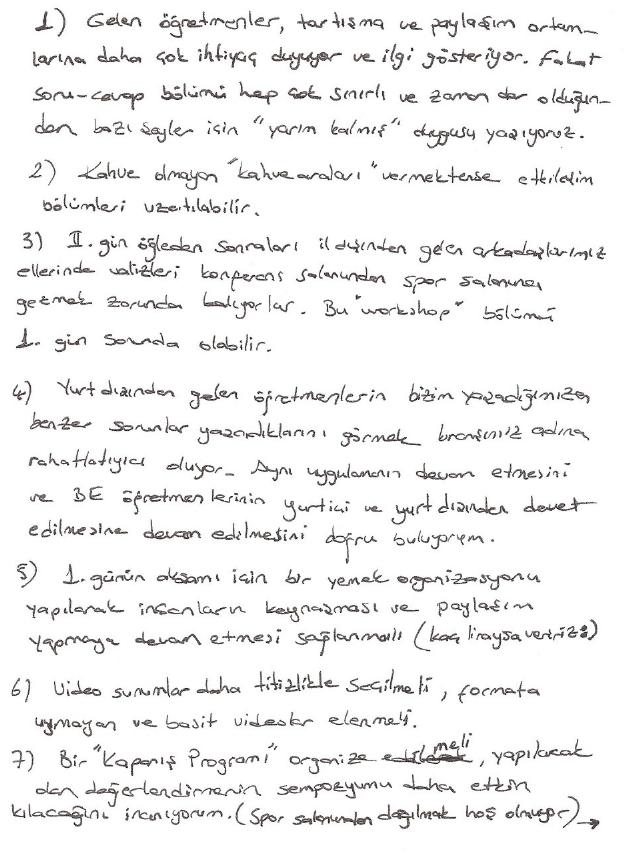 1) Gelen öğretmenler, tartışma ve paylaşım ortam-
larına daha çok ihtiyaç duyuyor ve ilgi gösteriyor. Fakat
soru-cevap bölümü hep çok sınırlı ve zaman dar olduğun-
dan bazı şeyler için "yarım kalmış" duygusu yaşıyoruz.
2) Kahve olmayan "kahve araları" vermektense etkileşim
bölümleri uzatılabilir.
3) II. gün öğleden sonraları il dışından gelen arkadaşlarımız
ellerinde valizleri konferans salonundan spor salonuna
geçmek zorunda kalıyorlar. Bu "workshop" bölümü
1. gün sonunda olabilir.
4) Yurtdışından gelen öğretmenlerin bizim yaşadığımıza
benzer sorunlar yaşadıklarını görmek branşımız adına
rahatlatıyıcı oluyor. Aynı uygulamanın devam etmesini
ve BE öğretmenlerinin yurtiçi ve yurtdışından davet
edilmesine devam edilmesini doğru buluyorum.
5) 1. günün akşamı için bir yemek organizasyonu
yapılarak insanların kaynaşması ve paylaşım
yapmaya devam etmesi sağlanmalı (kaç liraysa veririz :)
6) Video sunumlar daha titizlikle seçilmeli, formata
uymayan ve basit videolar elenmeli.
7) Bir "Kapanış Programı" organize edilmeli, yapılacak
olan değerlendirmenin sempozyumu daha etkin
kılacağını inanıyorum. (Spor salonundan dağılmak hoş olmuyor) →